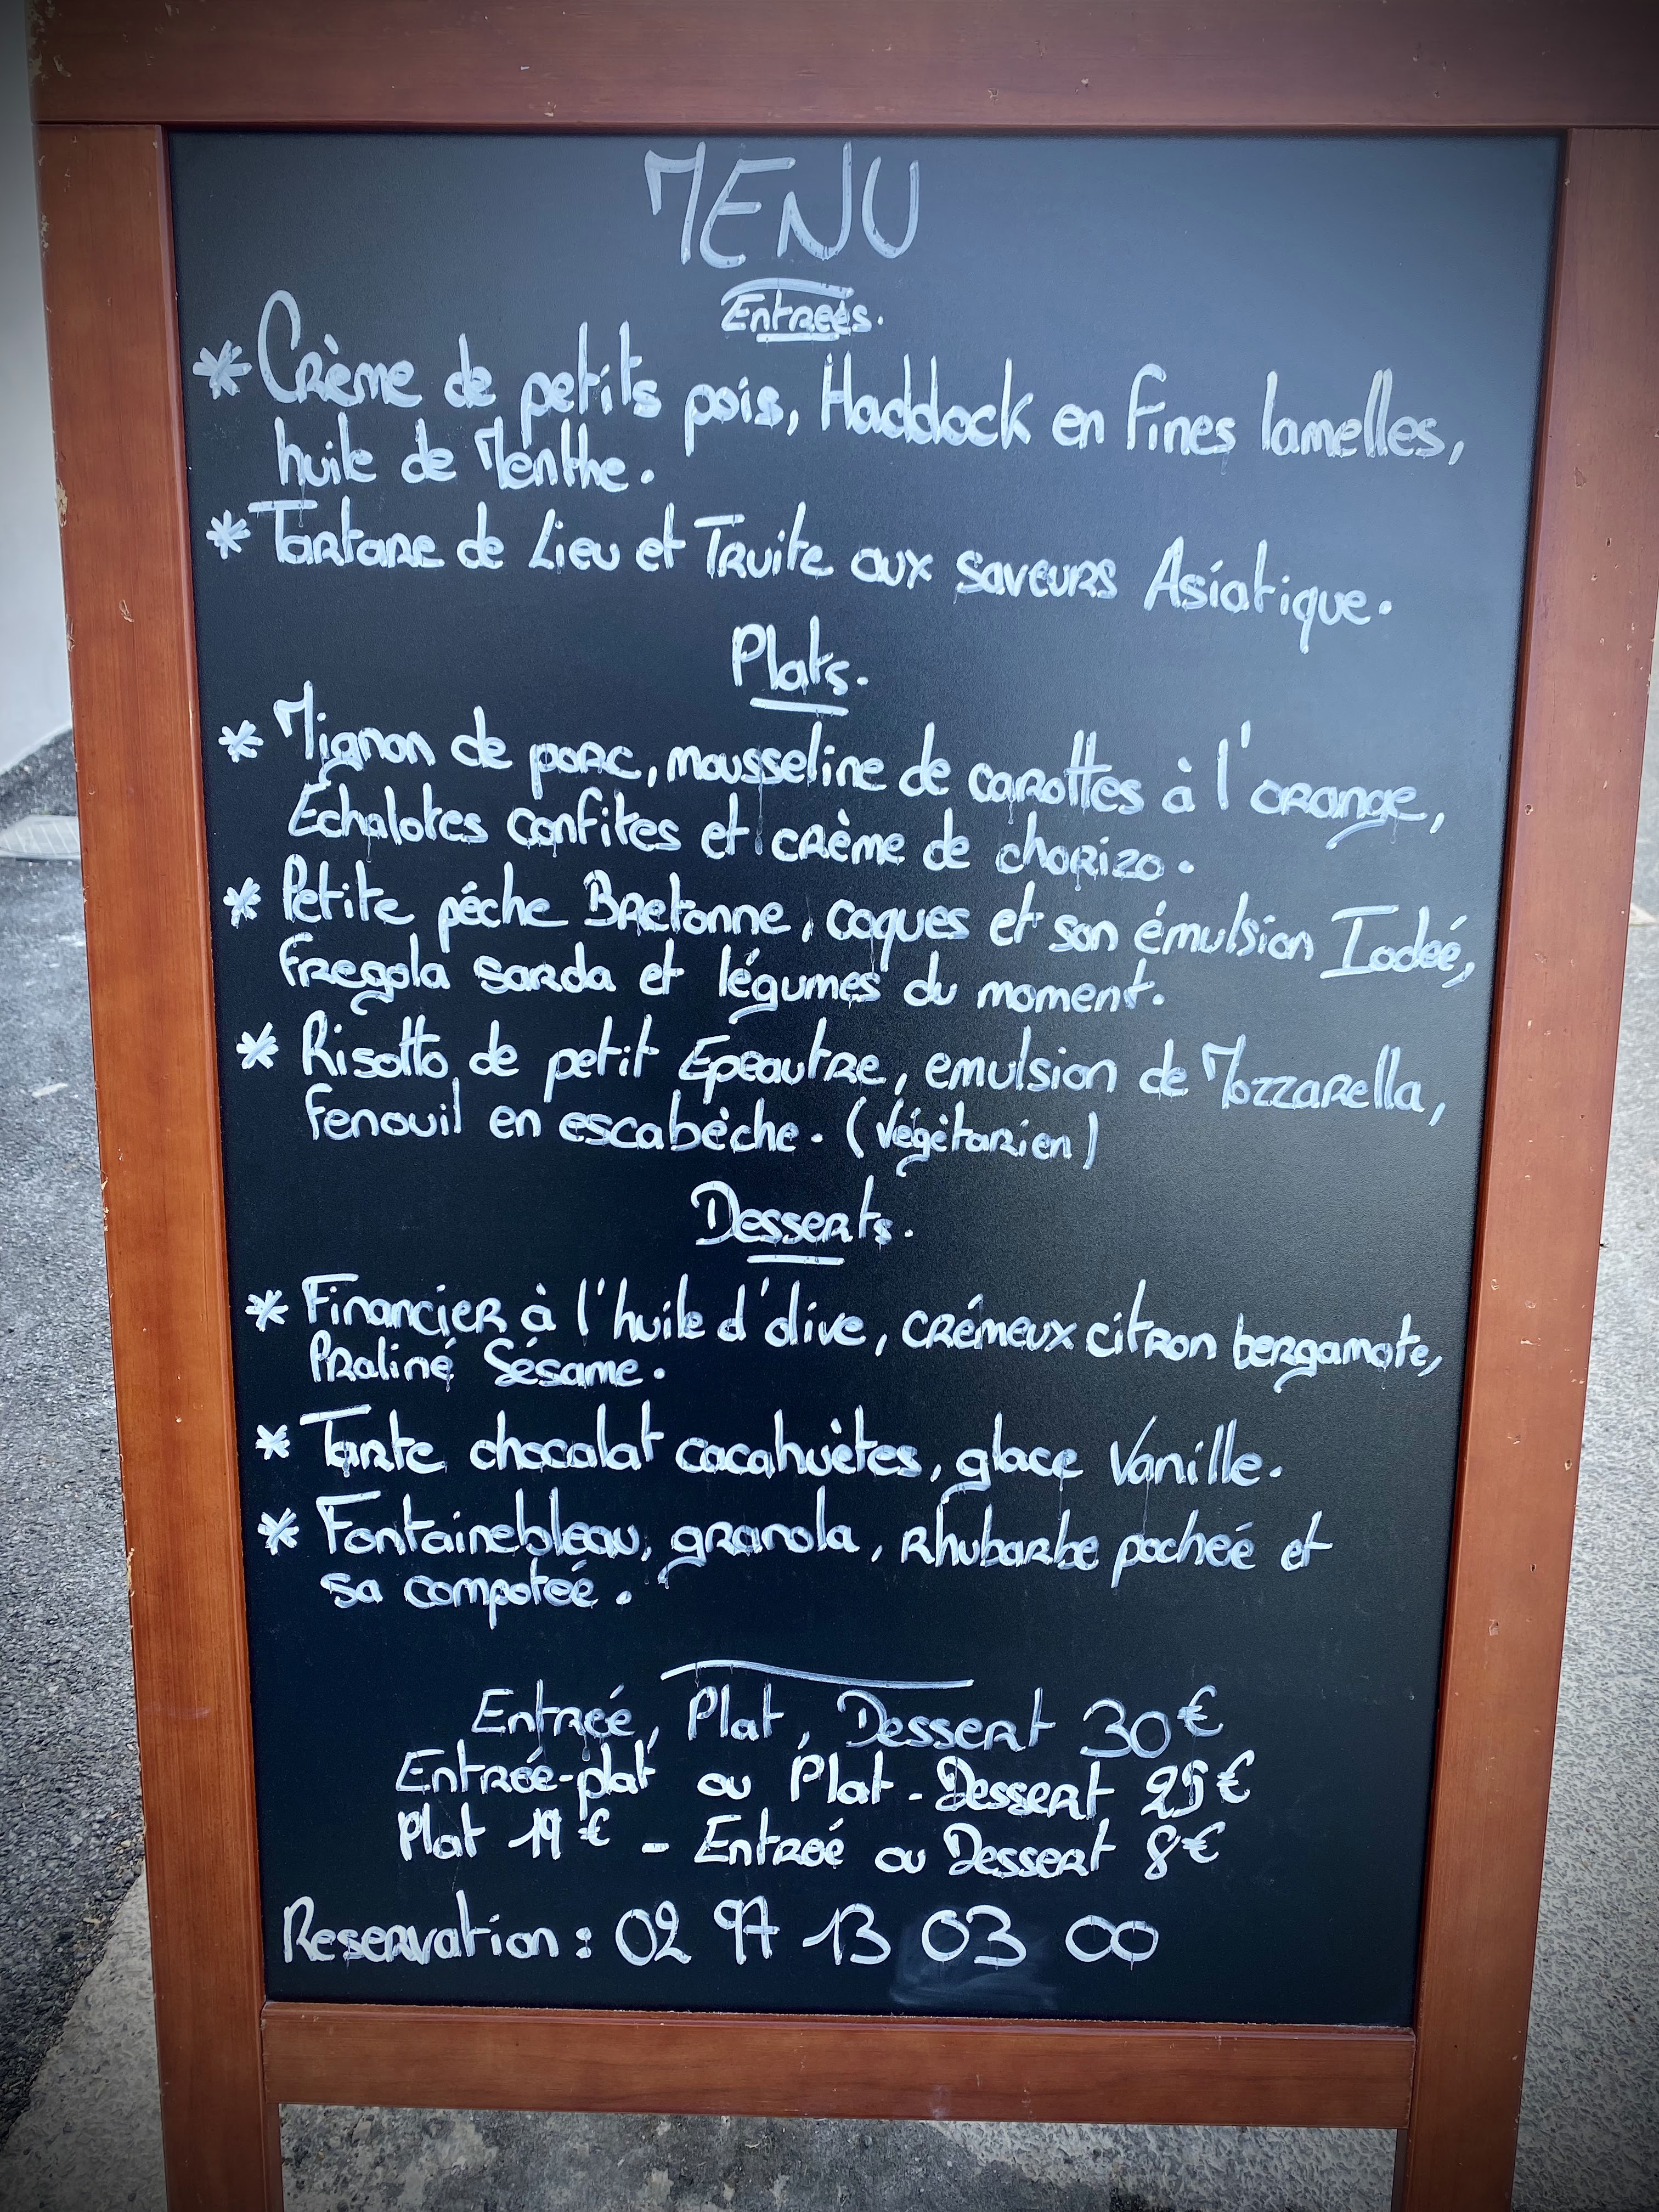 MENU
Entreés.
* Crème de petits pois, Haddock en fines lamelles,
huile de Menthe.
* Tartare de Lieu et Truite aux saveurs Asiatique.
Plats.
* Mignon de porc, mousseline de carottes à l'orange,
Echalotes confites et crème de chorizo.
* Petite péche Bretonne, coques et son émulsion Iodeé,
fregola sarda et légumes du moment.
* Risotto de petit Epeautre, emulsion de Mozzarella,
fenouil en escabèche. (Végétarien)
Desserts.
* Financier à l'huile d'olive, crémeux citron bergamote,
Praliné Sésame.
* Tarte chocolat cacahuètes, glace Vanille.
* Fontainebleau, granola, rhubarbe pocheé et
sa compoteé.
Entreé, Plat, Dessert 30€
Entreé-plat ou Plat-Dessert 25€
Plat 19€ - Entreé ou Dessert 8€
Reservation : 02 97 13 03 00